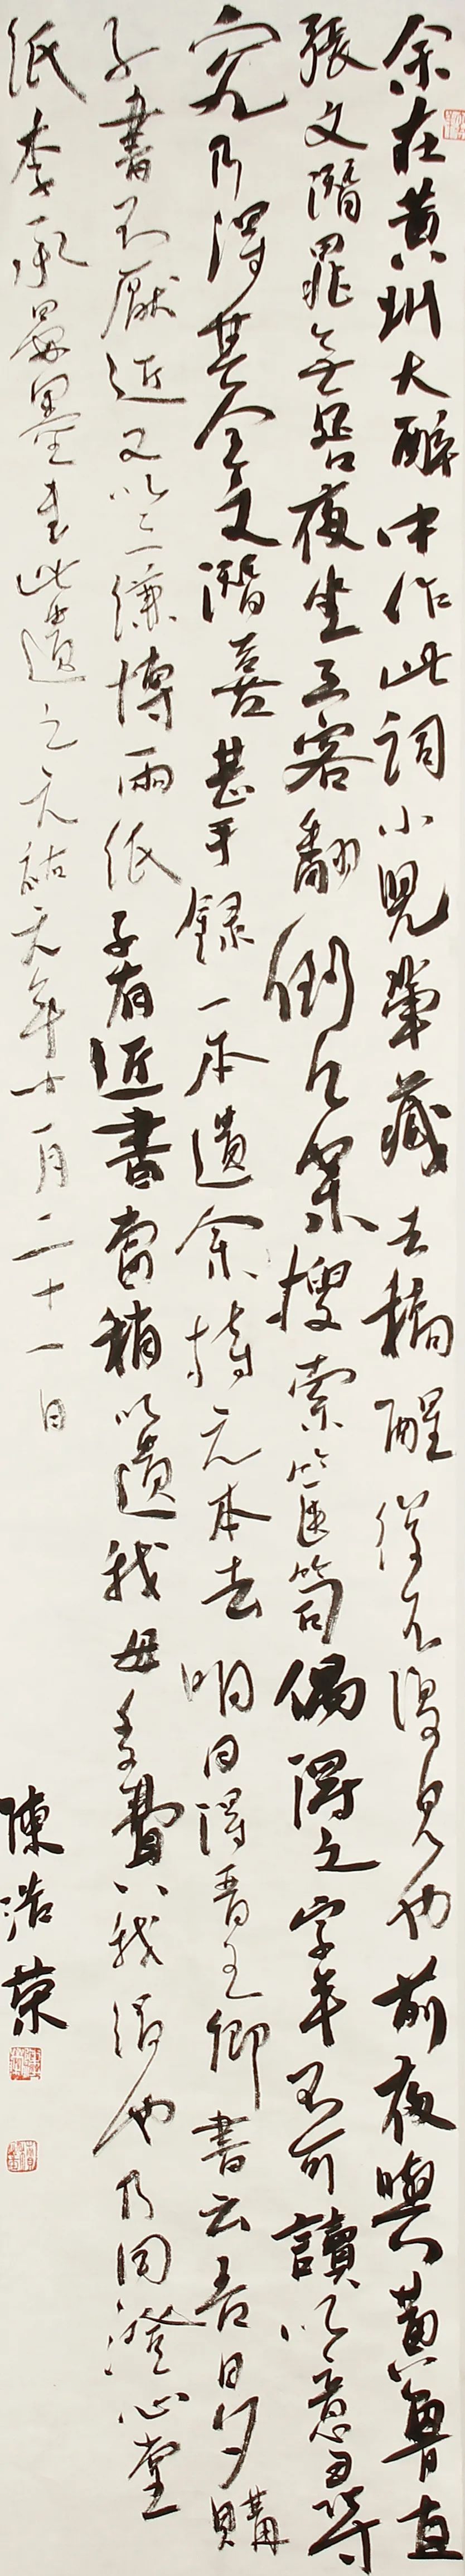 余在黃州大醉中作此詞小兒輩藏去稿醒後不復見也前夜與黃魯直
張文潛晁無咎夜坐三客翻倒几案搜索篋笥偶得之字半不可讀以意尋
究乃得其全文潛喜甚手錄一本遺余持元本去明日得晉王卿書云吾日夕購
子書不厭近又以三縑博兩紙子有近書當稍以遺我毋多費以我絹也乃同澄心堂
紙李承晏墨書此遺之元祐元年十一月二十一日
陳浩榮